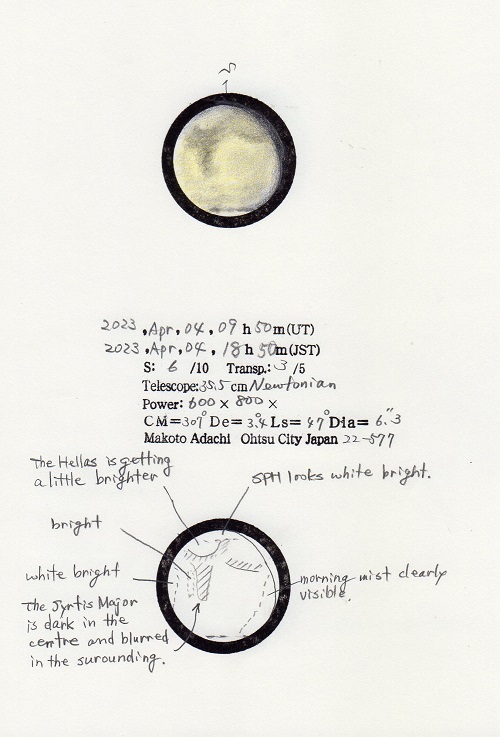 S
2023, Apr, 04, 09 h 50m(UT)
2023, Apr, 04, 18 h 50m(JST)
S: 6 /10 Transp.: 3 /5
Telescope: 35.5 cm Newtonian
Power: 600 × 800 ×
CM=307° De= 3.4° Ls= 47° Dia= 6.″3
Makoto Adachi Ohtsu City Japan 22-577
The Hellas is getting
a little brighter
SPH looks white bright.
bright
white bright
morning mist clearly
visible.
The Syrtis Major
is dark in the
centre and blurred
in the surounding.